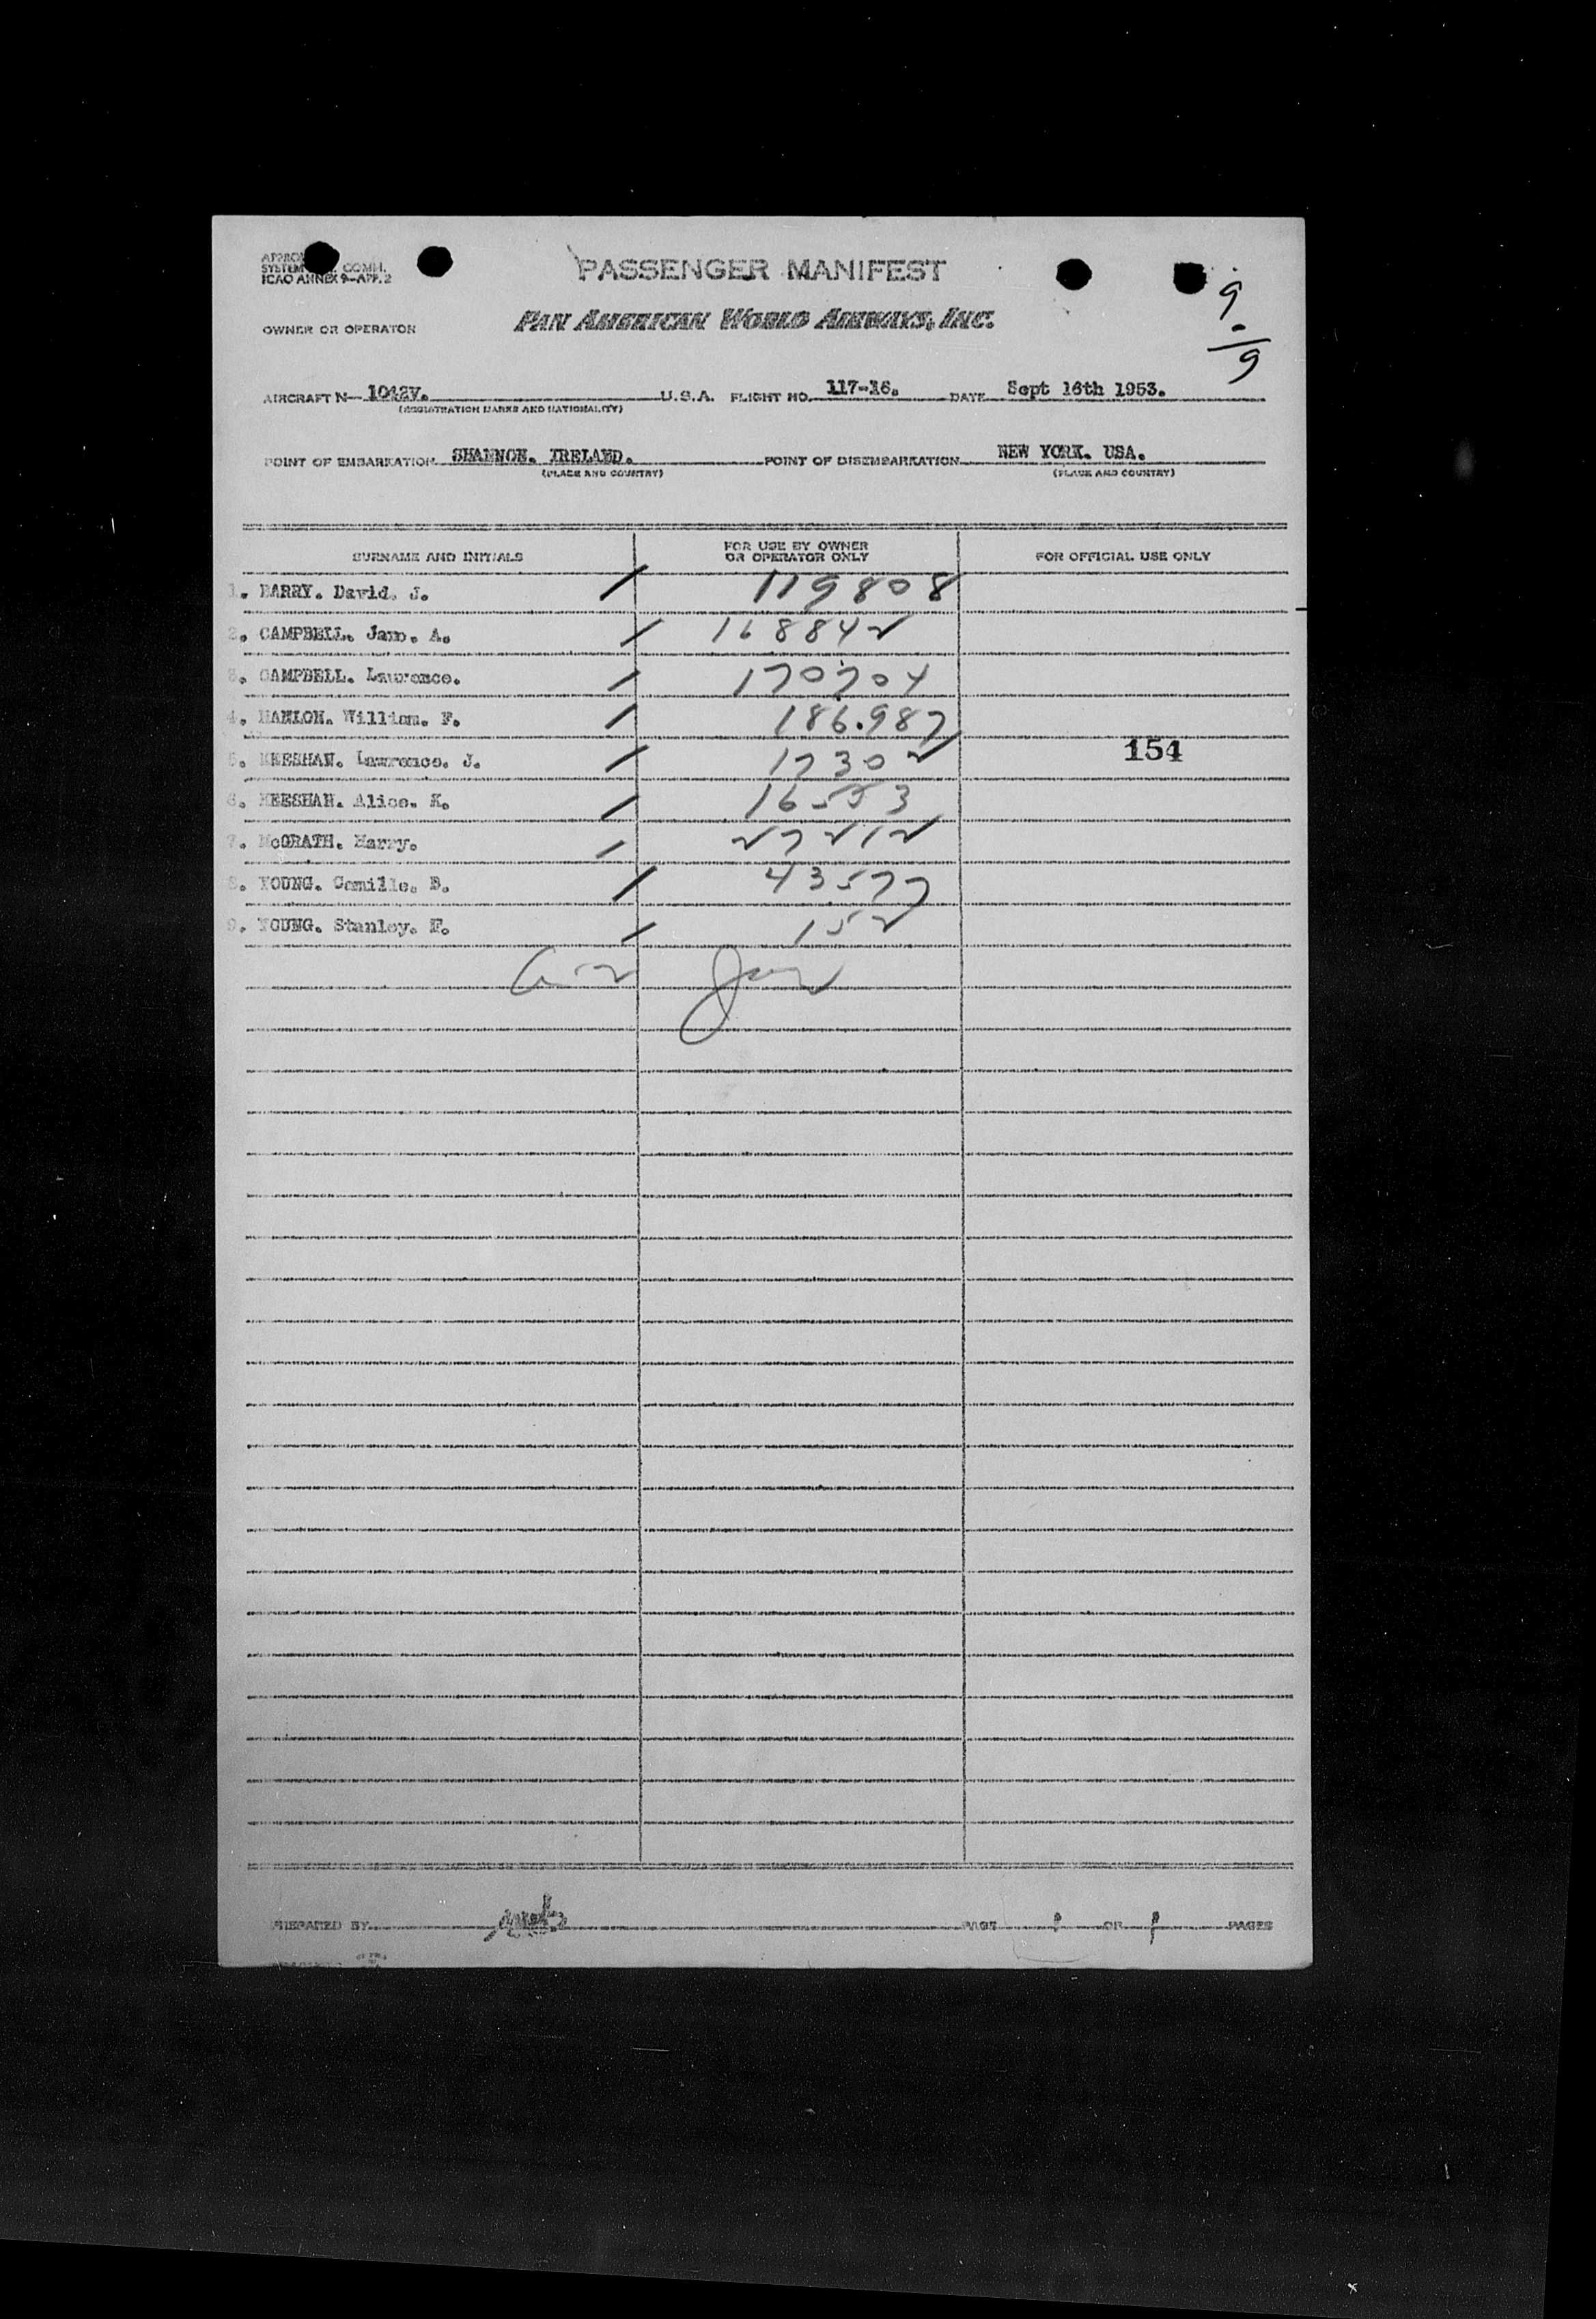 PASSENGER MANIFEST
SYSTEM COMM.
ICAO ANNEX 9-APP. 2
9
9
OWNER OR OPERATOR PAN AMERICAN WORLD AIRWAYS, INC.
AIRCRAFT N- 1042V. U.S.A. FLIGHT NO. 117-16. DATE Sept 16th 1953.
(REGISTRATION MARKS AND NATIONALITY)
POINT OF EMBARKATION SHANNON. IRELAND. POINT OF DISEMBARKATION NEW YORK. USA.
(PLACE AND COUNTRY) (PLACE AND COUNTRY)
SURNAME AND INITIALS FOR USE BY OWNER OR OPERATOR ONLY FOR OFFICIAL USE ONLY
1. BARRY. David. J. 119808
2. CAMPBELL. Jane. A. 168842
3. CAMPBELL. Lawrence. 170704
4. HANLON. William. F. 186.987
5. KEESHAN. Lawrence. J. 17302 154
6. KEESHAN. Alice. K. 16553
7. McGRATH. Harry. 27212
8. YOUNG. Camille. B. 43577
9. YOUNG. Stanley. F. 152
PREPARED BY PAGE 1 OF 1 PAGES